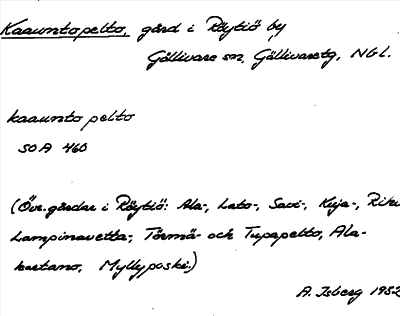 Kaauntopelto, gård i Röytiö by
Gällivare sn, Gällivaretg, Nbl.
kaaunto pelto
SOA 460
(Övr. gårdar i Röytiö: Ala-, Lato-, Savi-, Kuja-,
Lampinavetta-, Törmä- och Tupapelto, Ala-
kartano, Myllyposki.)
A. Isberg 1952